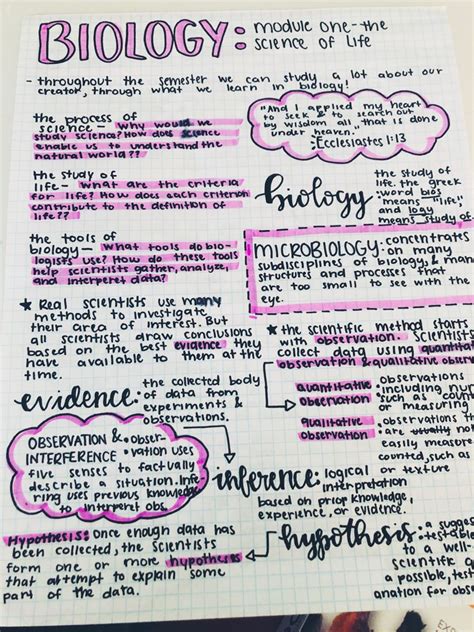 BIOLOGY: module one-the
science of life
- throughout the semester we can study a lot about our
creator, through what we learn in biology!
the process of
science- why would we
study science? How does science
enable us to understand the
natural world??
"And I applied my heart
to seek & to search out
by wisdom all that is done
under heaven."
-Ecclesiastes 1:13
the study of
life- what are the criteria
for life? How does each criterion
contribute to the definition of
life??
biology
the study of
life. the greek
word bios
"means "life,"
and logy
means study of.
the tools of
biology- what tools do bio-
logists use? How do these tools
help scientists gather, analyze,
and interpret data?
MICROBIOLOGY: concentrates
on many
subdisciplines of biology, & many
structures and processes that
are too small to see with the
eye.
★ Real scientists use many
methods to investigate
their area of interest. But
all scientists draw conclusions
based on the best evidence they
have available to them at the
time.
★ the scientific method starts
with observation. Scientists
collect data using quantitat
observation & qualitative observat
quantitative
observation
- observations
including nu
such as count
or measuring
qualitative
observation
- observations th
are usually not
easily measure
counted, such as
or texture
evidence:
the collected body
of data from
experiments &
observations.
OBSERVATION & INTERFERENCE
- obser-
vation uses
five senses to factually
describe a situation. Infe
rring uses previous knowledge
to interpret obs.
inference:
logical
interpretation
based on prior knowledge,
experience, or evidence.
Hypothesis: Once enough data has
been collected, the scientists
form one or more hypothesis
that attempt to explain some
part of the data.
hypothesis:
a sugges
testable
to a well-
scientific q
a possible, test
anation for obs